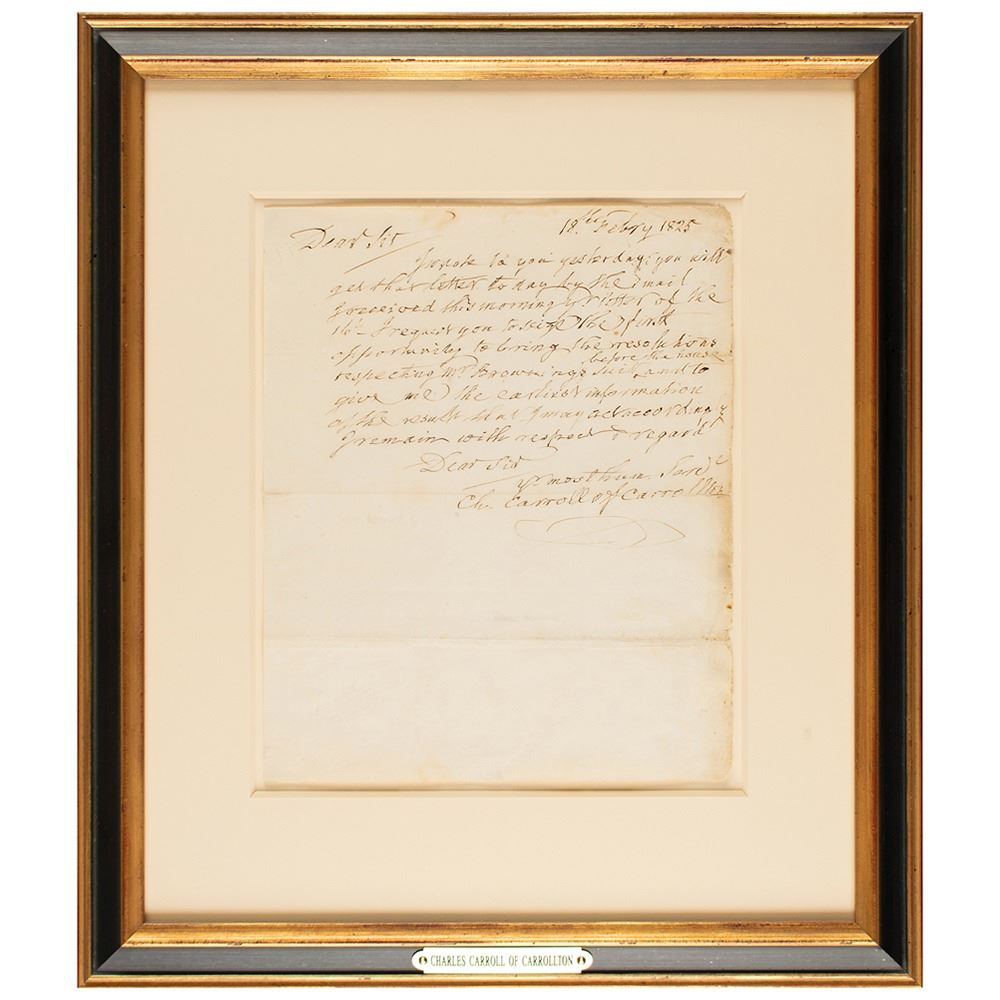 18th Febry 1825
Dear Sir
I wrote to you yesterday; you will
get that letter to day by the mail
I received this morning yr letter of the
16th I request you to seize the first
opportunity to bring the resolutions
before the house
respecting Mr Browning's suit, and to
give me the earliest information
of the result that I may act accordingly
I remain with respect & regard
Dear Sir
yr most hum. Servt
Ch. Carroll of Carrollton
CHARLES CARROLL OF CARROLLTON